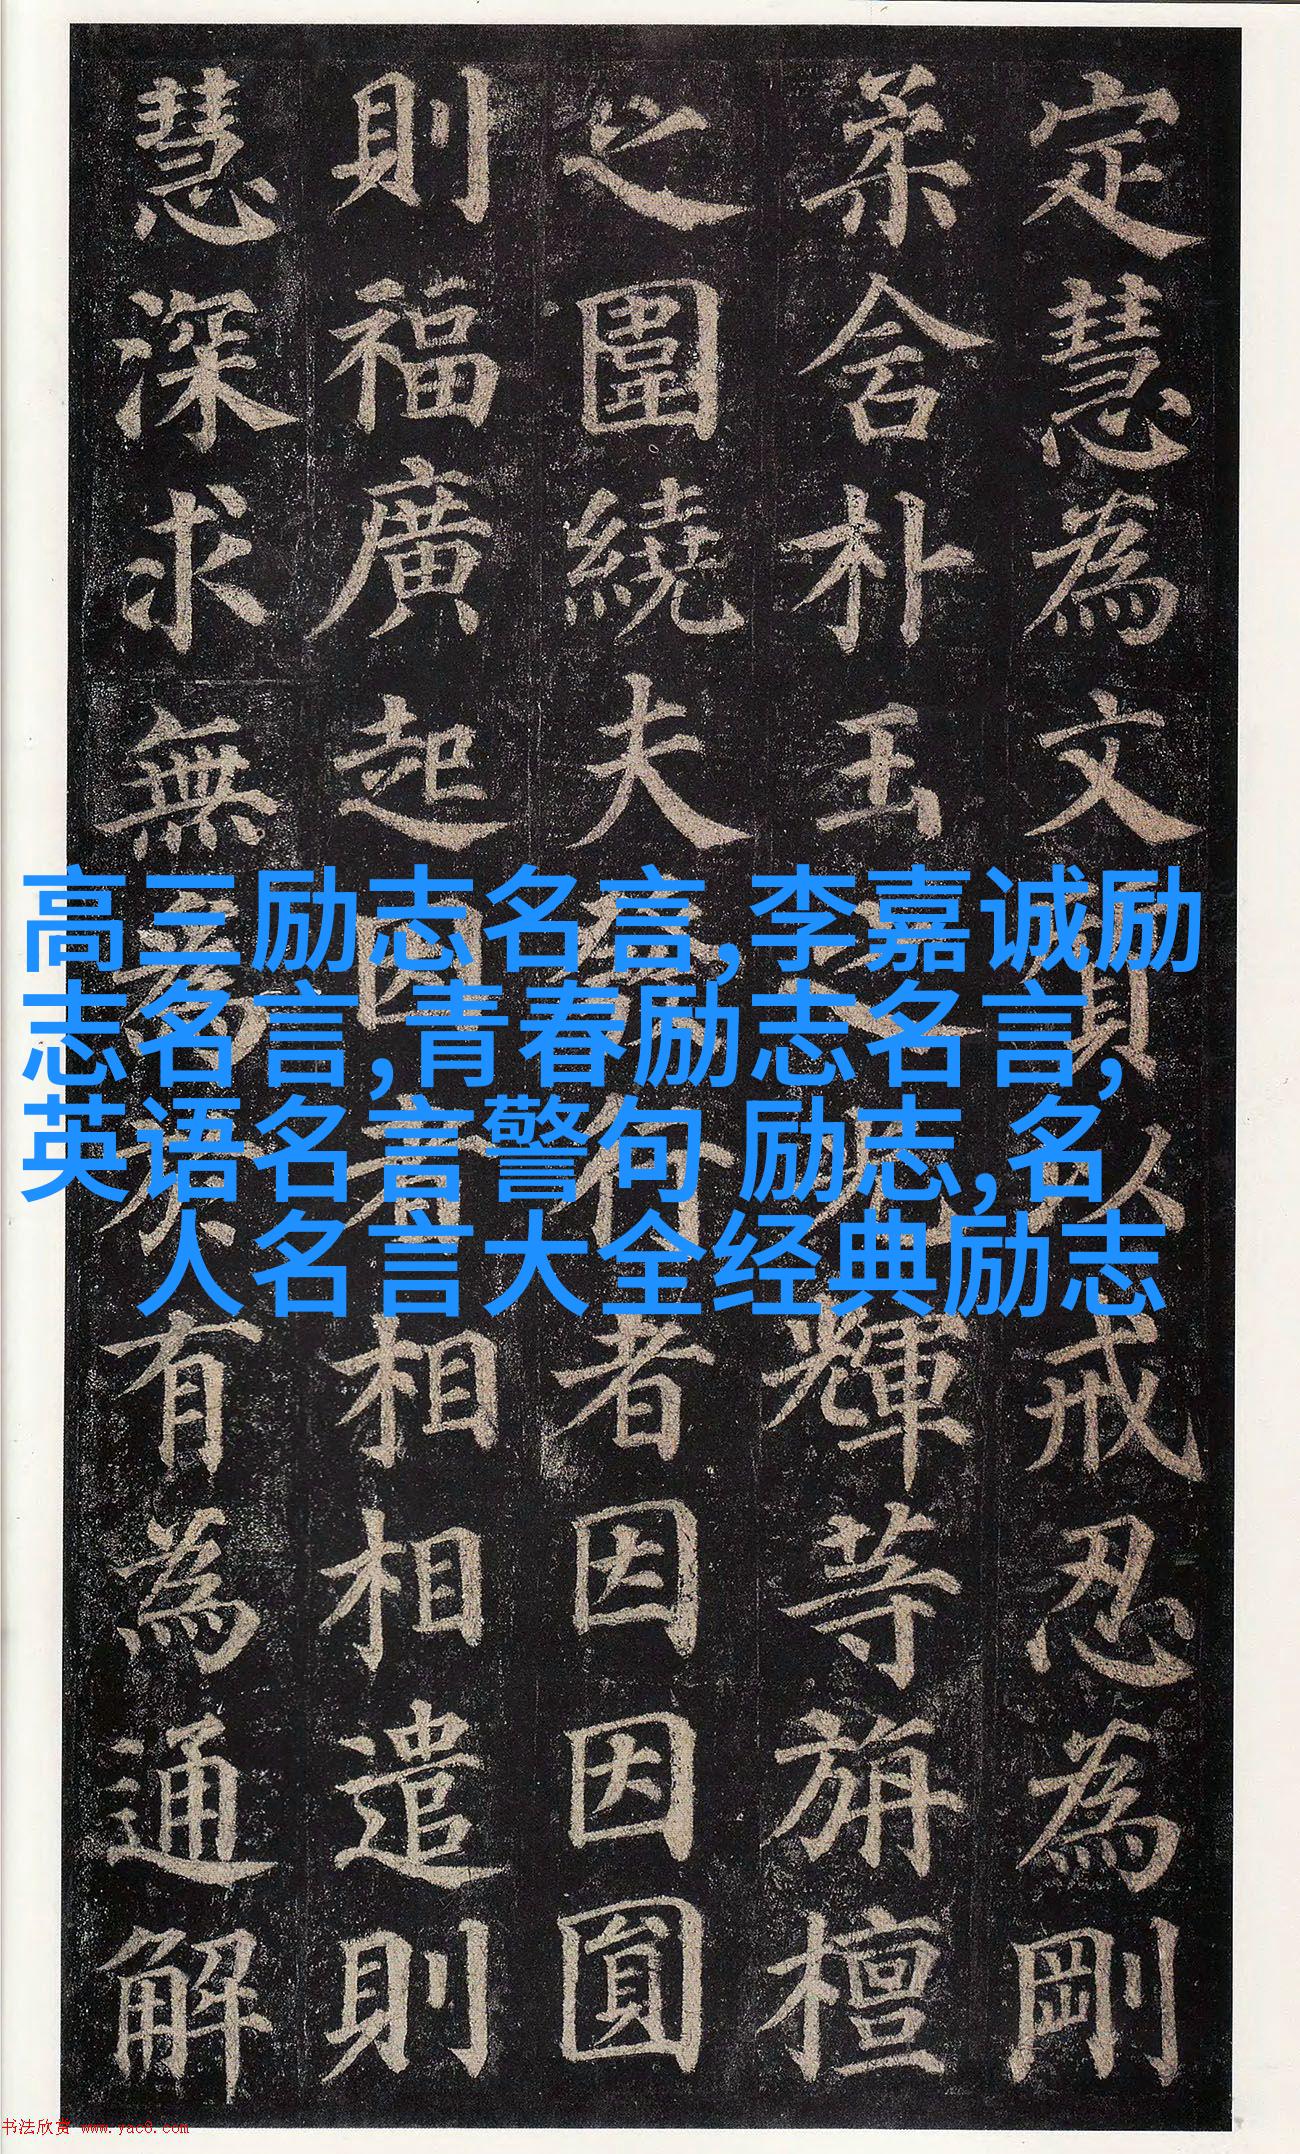 定慧為文質以戒忍為剛
柔含朴玉之光輝等旃檀
之圍繞夫發行者因因圓
則福廣起因者相相遣則
慧深求無為於有為通解
高三励志名言,李嘉诚励
志名言,青春励志名言,
英语名言警句 励志,名
人名言大全经典励志
书法欣赏 www.yac8.com